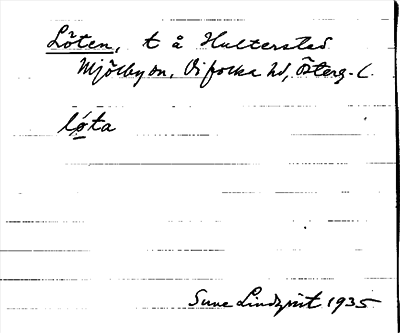 Löten, t å Hulterstad
Mjölby sn, Vifolka hd, Österg. l.
lǿta
Sune Lindqvist 1935